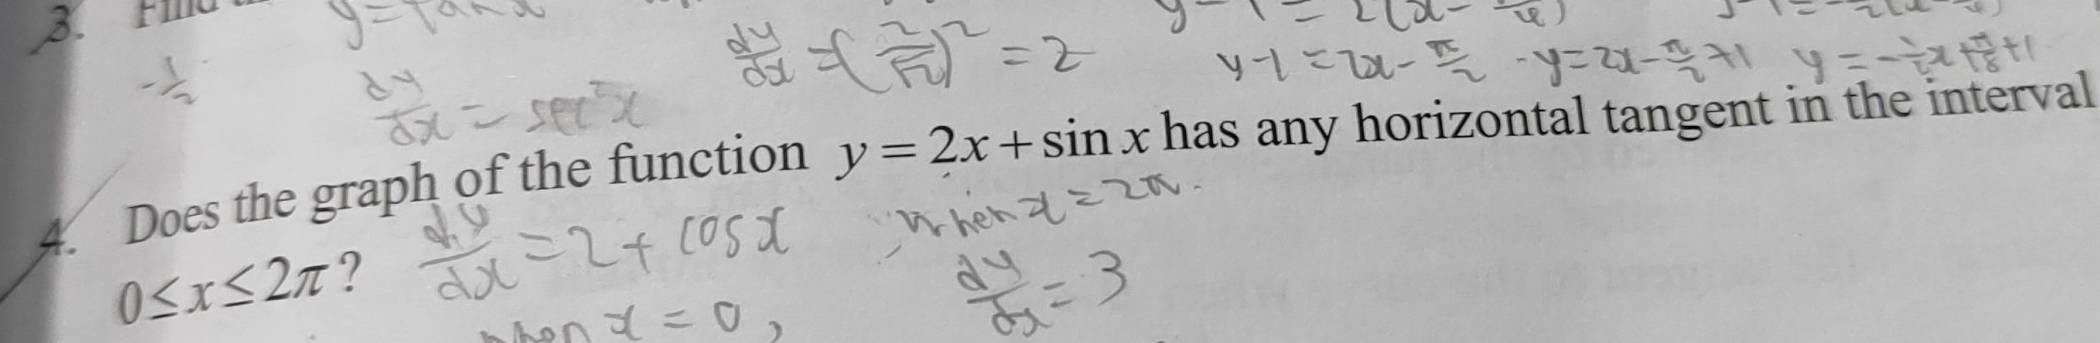 3.
y = tan x
y - 1 = 2(x -
-1/2
dy/dx = (2/√2)² = 2
y - 1 = 2x - π/2 y = 2x - π/2 + 1 y = -1/2 x + π/8 + 1
dy/dx = sec² x
4. Does the graph of the function y = 2x + sin x has any horizontal tangent in the interval
0 ≤ x ≤ 2π ?
dy/dx = 2 + cos x
when x = 2π.
when x = 0,
dy/dx = 3